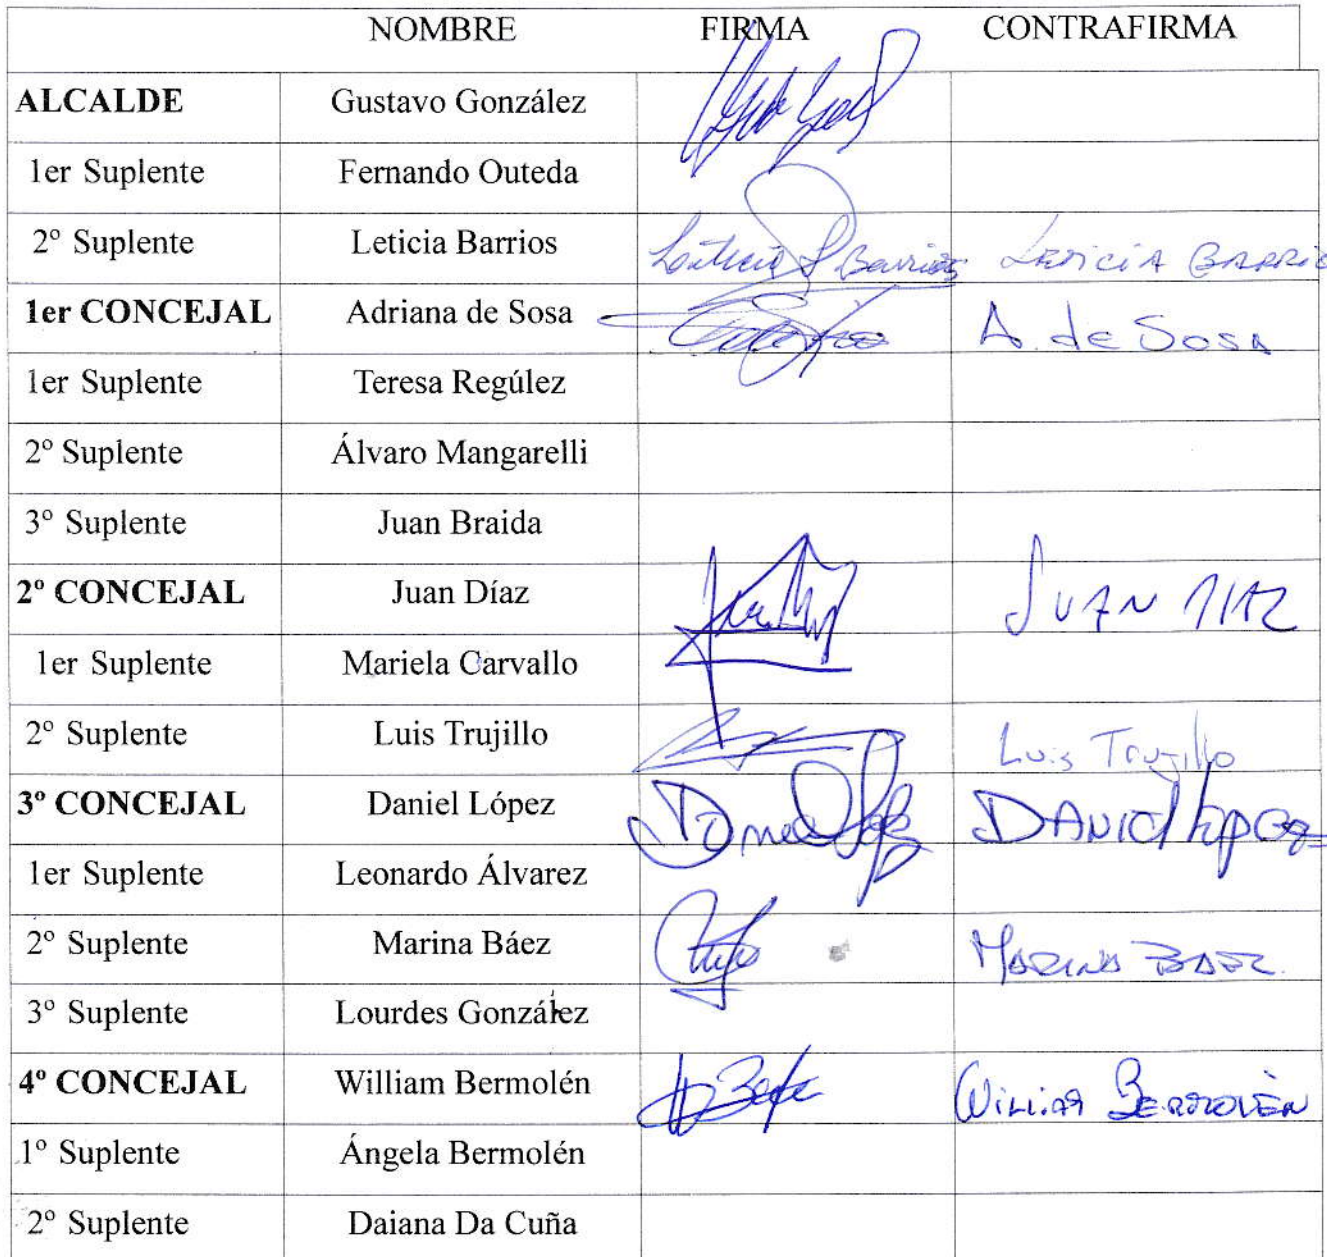 NOMBRE FIRMA CONTRAFIRMA
ALCALDE Gustavo González
1er Suplente Fernando Outeda
2º Suplente Leticia Barrios Leticia Barrios LETICIA BARRIO
1er CONCEJAL Adriana de Sosa A. de Sosa
1er Suplente Teresa Regúlez
2º Suplente Álvaro Mangarelli
3º Suplente Juan Braida
2º CONCEJAL Juan Díaz JUAN DIAZ
1er Suplente Mariela Carvallo
2º Suplente Luis Trujillo Luis Trujillo
3º CONCEJAL Daniel López Daniel López DANIEl López
1er Suplente Leonardo Álvarez
2º Suplente Marina Báez MARINA BAEZ
3º Suplente Lourdes González
4º CONCEJAL William Bermolén WILLIAM BERMOLÉN
1º Suplente Ángela Bermolén
2º Suplente Daiana Da Cuña